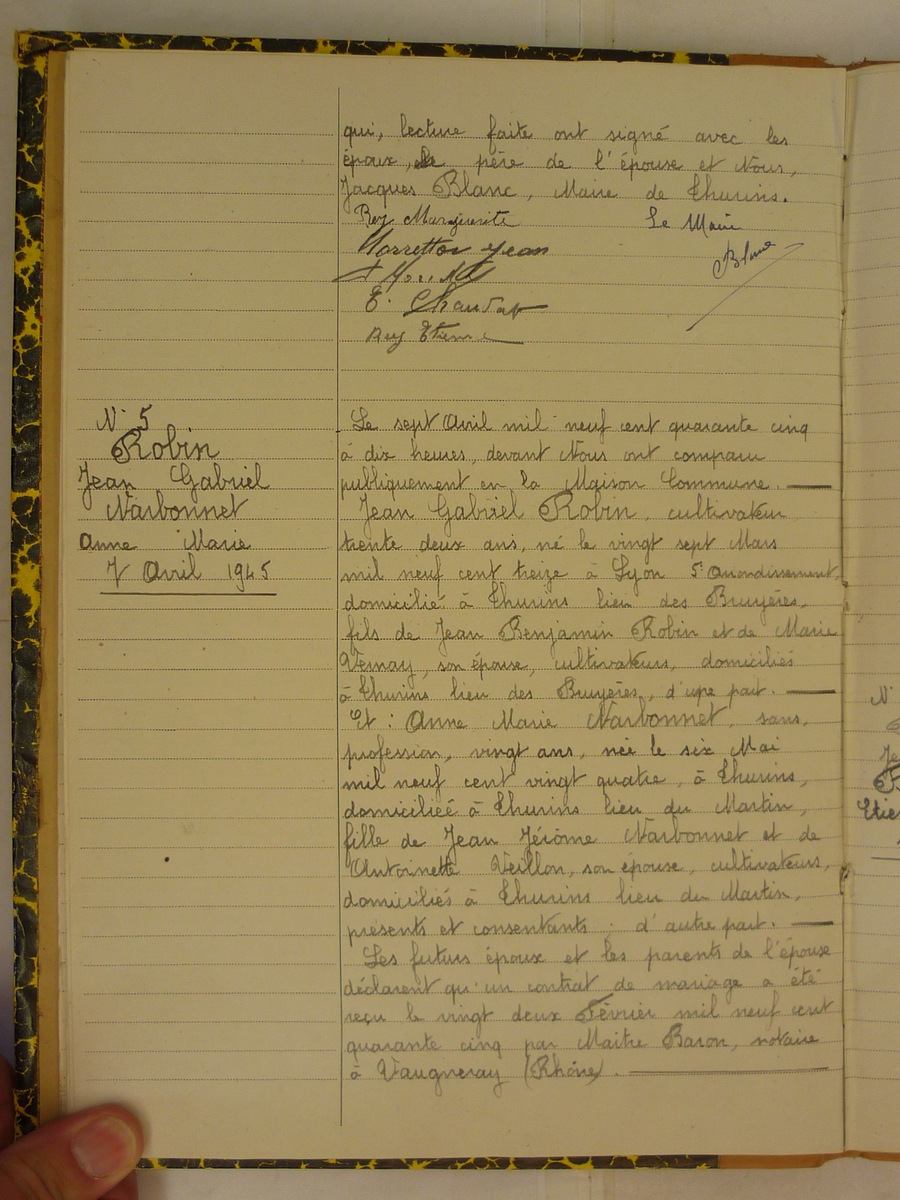 qui, lecture faite ont signé avec les
époux, le père de l'épouse et Nous,
Jacques Blanc, Maire de Thurins.
Rey Marguerite Le Maire
Jean Blanc
E. Chaudat
Rey Etienne
N° 5
Robin
Jean Gabriel
Narbonnet
Anne Marie
7 Avril 1945
Le sept Avril mil neuf cent quarante cinq
à dix heures, devant Nous ont comparu
publiquement en la Maison Commune.
Jean Gabriel Robin, cultivateur
trente deux ans, né le vingt sept Mars
mil neuf cent treize à Lyon 5e Arrondissement,
domicilié à Thurins lieu des Bruyères,
fils de Jean Benjamin Robin et de Marie
Vernay, son épouse, cultivateurs, domiciliés
à Thurins lieu des Bruyères, d'une part.
Et : Anne Marie Narbonnet, sans,
profession, vingt ans, née le six Mai
mil neuf cent vingt quatre, à Thurins,
domiciliée à Thurins lieu du Martin,
fille de Jean Jérôme Narbonnet et de
Antoinette Veillon, son épouse, cultivateurs,
domiciliés à Thurins lieu du Martin,
présents et consentants : d'autre part.
Les futurs époux et les parents de l'épouse
déclarent qu'un contrat de mariage a été
reçu le vingt deux Février mil neuf cent
quarante cinq par Maître Baron, notaire
à Vaugneray (Rhône).